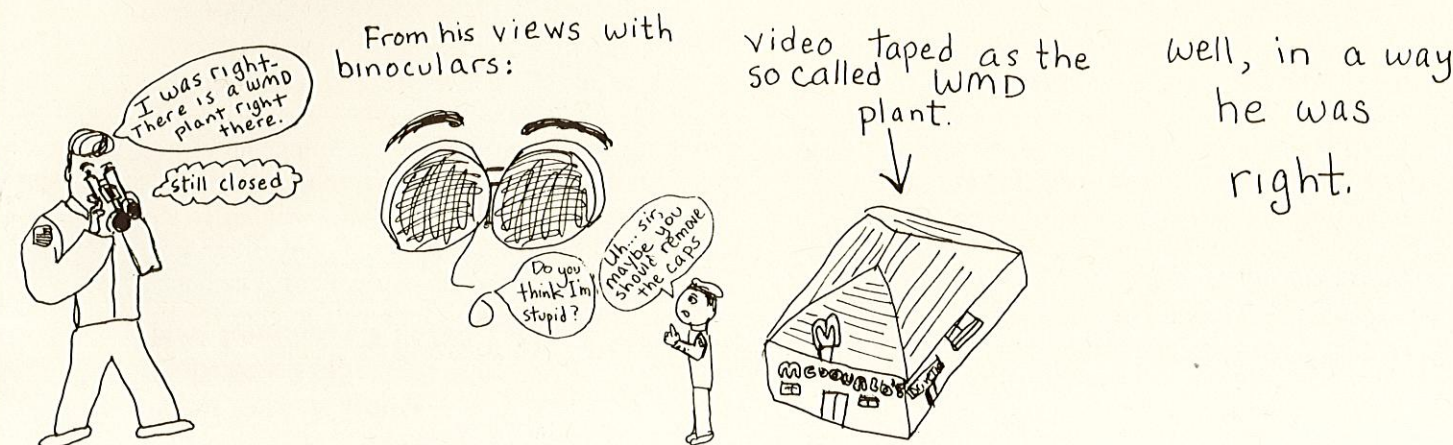 I was right-
There is a WMD
plant right
there.
still closed
From his views with
binoculars:
Do you
think I'm
stupid?
Uh... sir,
maybe you
should remove
the caps
video taped as the
so called WMD
plant.
M
McDONALD'S
well, in a way
he was
right.